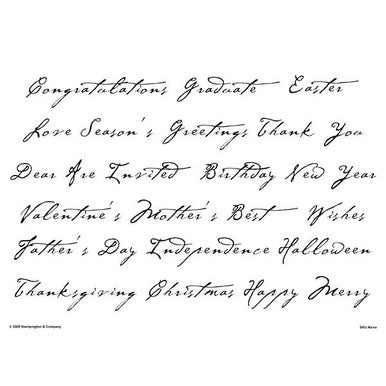 Congratulations Graduate Easter
Love Season's Greetings Thank You
Dear Are Invited Birthday New Year
Valentine's Mother's Best Wishes
Father's Day Independence Halloween
Thanksgiving Christmas Happy Merry
© 2005 Stampington & Company